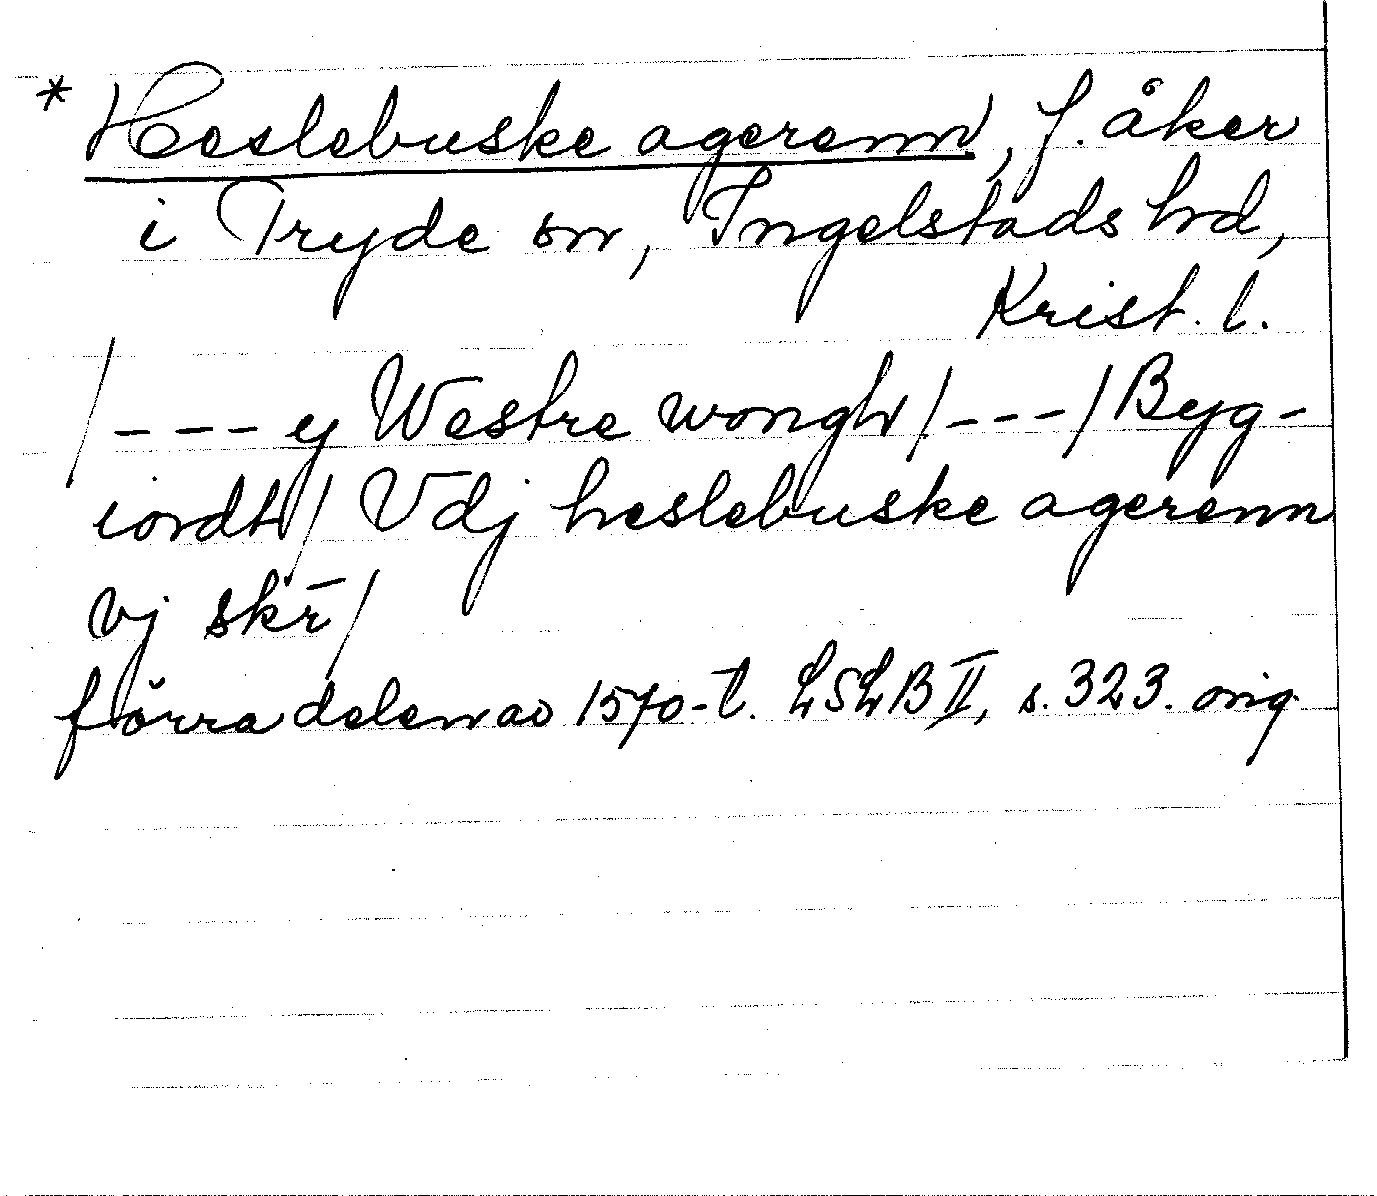 * Heslebuske agerenn, f. åker
i Tryde sn, Ingelstads hd,
Krist. l.
/---y Westre wongh/---/Byg-
iordh/ Vdj heslebuske agerenn
vj skr̄/
förra delen av 1570-t. LSLB II, s. 323. orig.